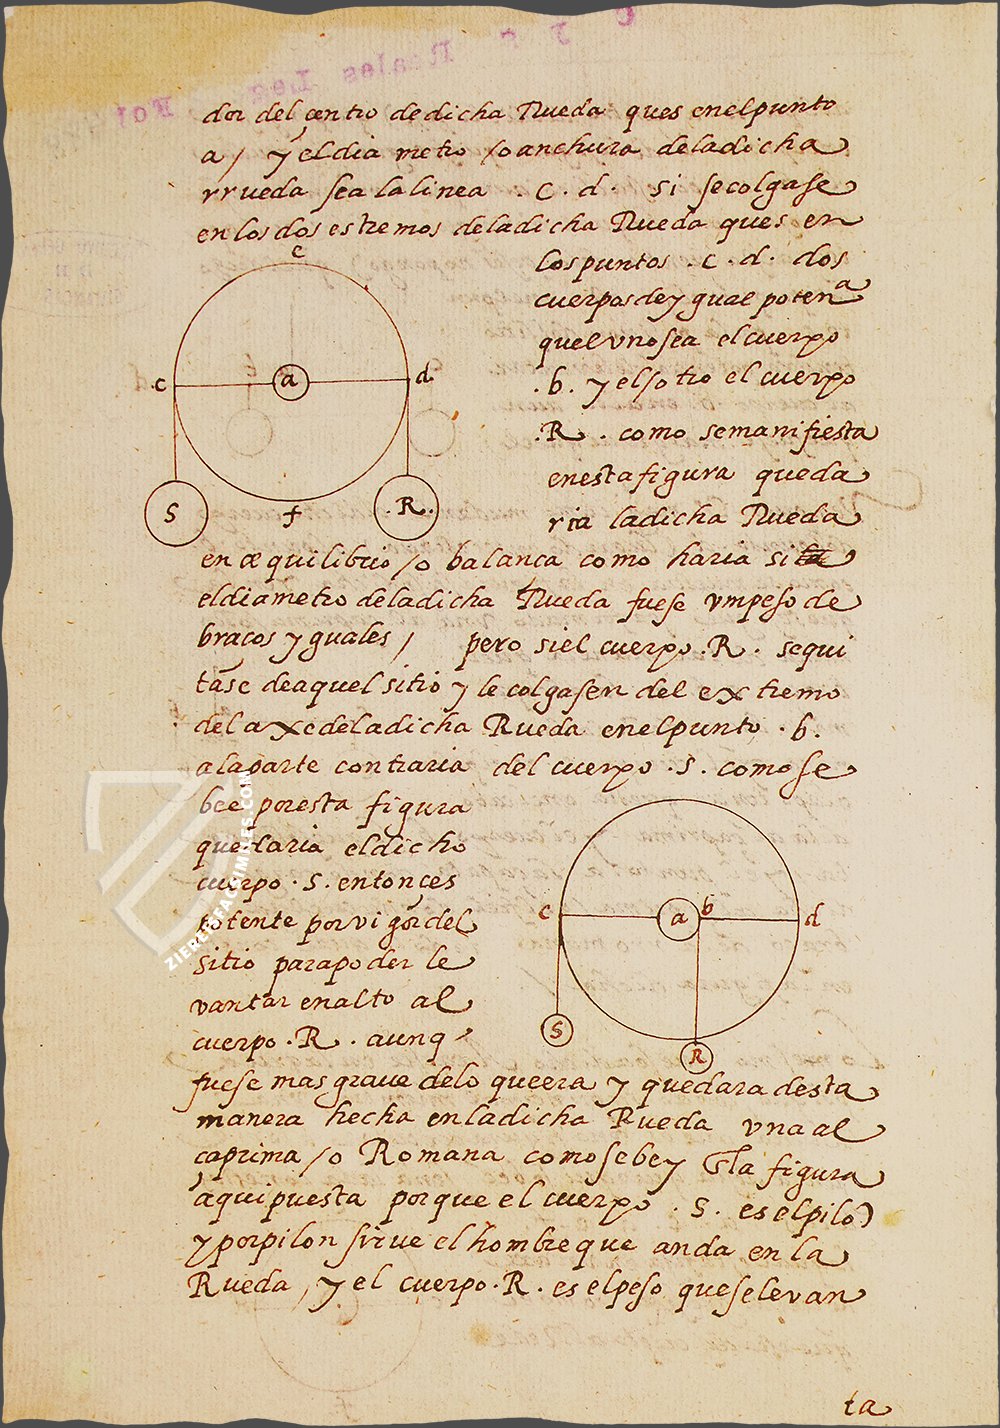 dor del çentro de dicha Rueda ques en el punto
a / y el dia metro / o anchura de la dicha
rrueda sea la linea . c . d . si se colgase
en los dos estremos de la dicha Rueda ques en
los puntos . c . d . dos
cuerpos de ygual potenª
quel vno sea el cuerpo
. b . y el sotro el cuerpo
. R . como se manifiesta
en esta figura queda
ria la dicha Rueda
e
c
a
d
S
f
. R .
en æquilibrio / o balança como haria si
el diametro de la dicha Rueda fuese vm peso de
braços yguales / pero si el cuerpo . R . se qui
tase de aquel sitio y le colgasen del extremo
del axe de la dicha Rueda en el punto . b .
a la parte contraria del cuerpo . S . como se
bee por esta figura
quedaria el dicho
cuerpo . S . entonçes
potente por vigor del
sitio para poder le
vantar en alto al
cuerpo . R . aunq
c
a
b
d
S
R
fuese mas graue de lo que era y quedara desta
manera hecha en la dicha Rueda vna al
caprima / o Romana como se be y la figura
aqui puesta por que el cuerpo . S . es el pilo
y por pilon sirue el hombre que anda en la
Rueda , y el cuerpo . R . es el peso que se levan
ta
ZIEREIS FACSIMILES.COM